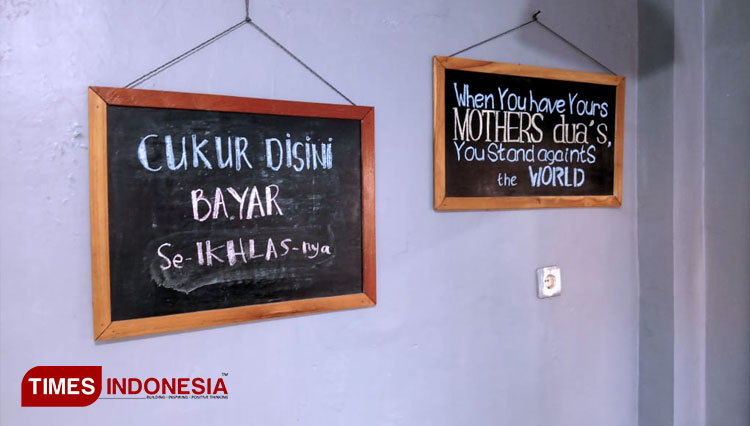 CUKUR DISINI
BAYAR
Se-IKHLAS-nya
When You have Yours
MOTHERS dua's,
You Stand againts
the WORLD
TIMES INDONESIA
TM
BUILDING - INSPIRING - POSITIVE THINKING